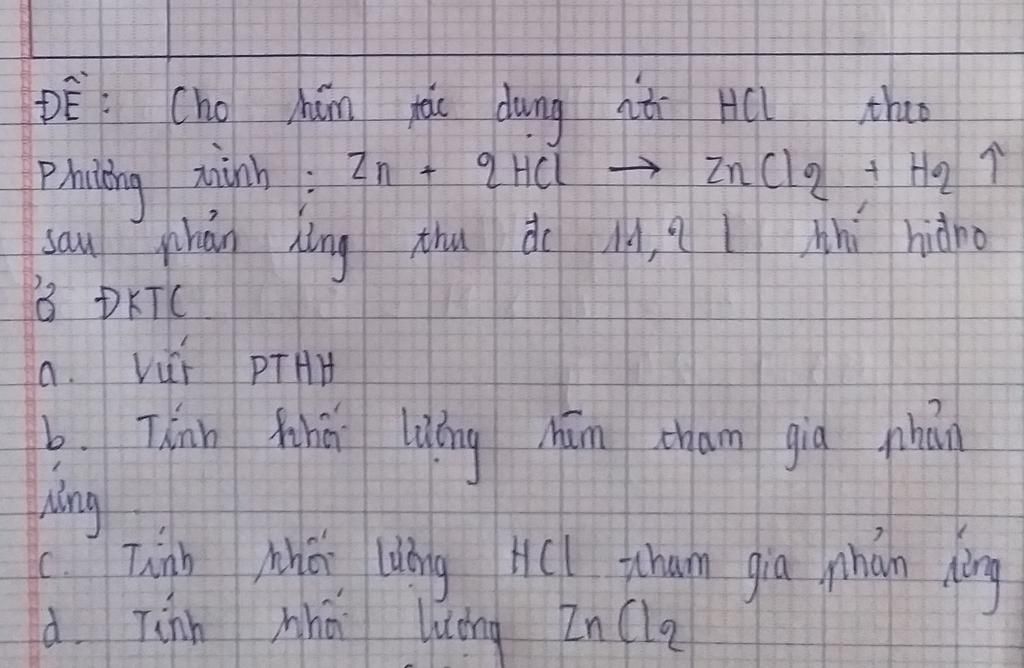 ĐỀ: Cho kẽm tác dụng với HCl theo
Phương trình: Zn + 2HCl → ZnCl2 + H2 ↑
sau phản ứng thu đc 11,2 l khí hiđro
ở ĐKTC
a. Viết PTHH
b. Tính khối lượng kẽm tham gia phản
ứng
c. Tính khối lượng HCl tham gia phản ứng
d. Tính khối lượng ZnCl2